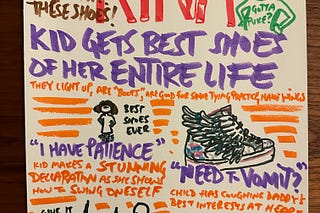 THESE SHOES!
GOTTA
PUKE?
KID GETS BEST SHOES
OF HER ENTIRE LIFE
THEY LIGHT UP, ARE "BOOTS", ARE GOOD FOR SHOE TYING PRACTICE, HAVE WINGS
BEST
SHOES
EVER
"I HAVE PATIENCE"
KID MAKES A STUNNING
DECLARATION AS SHE SHOWS
HOW TO SWING ONESELF
"NEED TO VOMIT?"
CHILD HAS COUGHING DADDY'S
BEST INTERESTS AT HEART